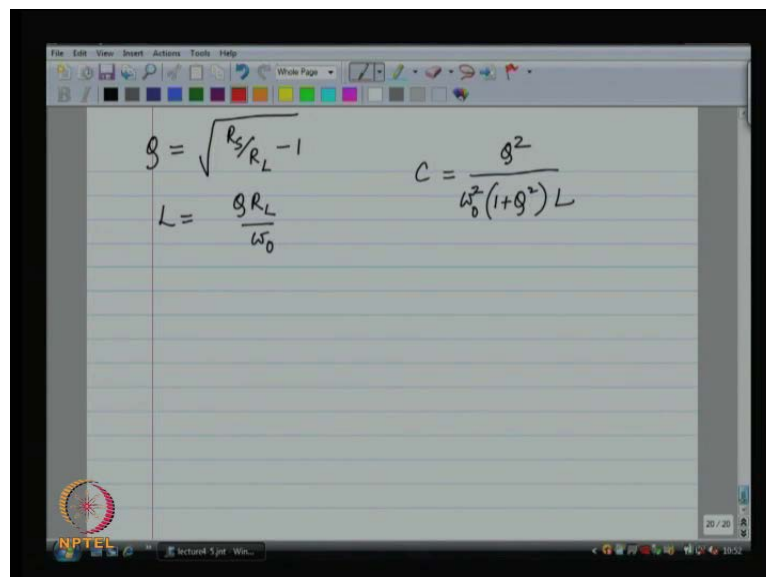 File Edit View Insert Actions Tools Help
Whole Page
B I
Q = √(R_S/R_L - 1)
C = Q² / (ω₀² (1+Q²) L)
L = Q R_L / ω₀
20 / 20
NPTEL
lecture4-5.jnt - Win...
10:52